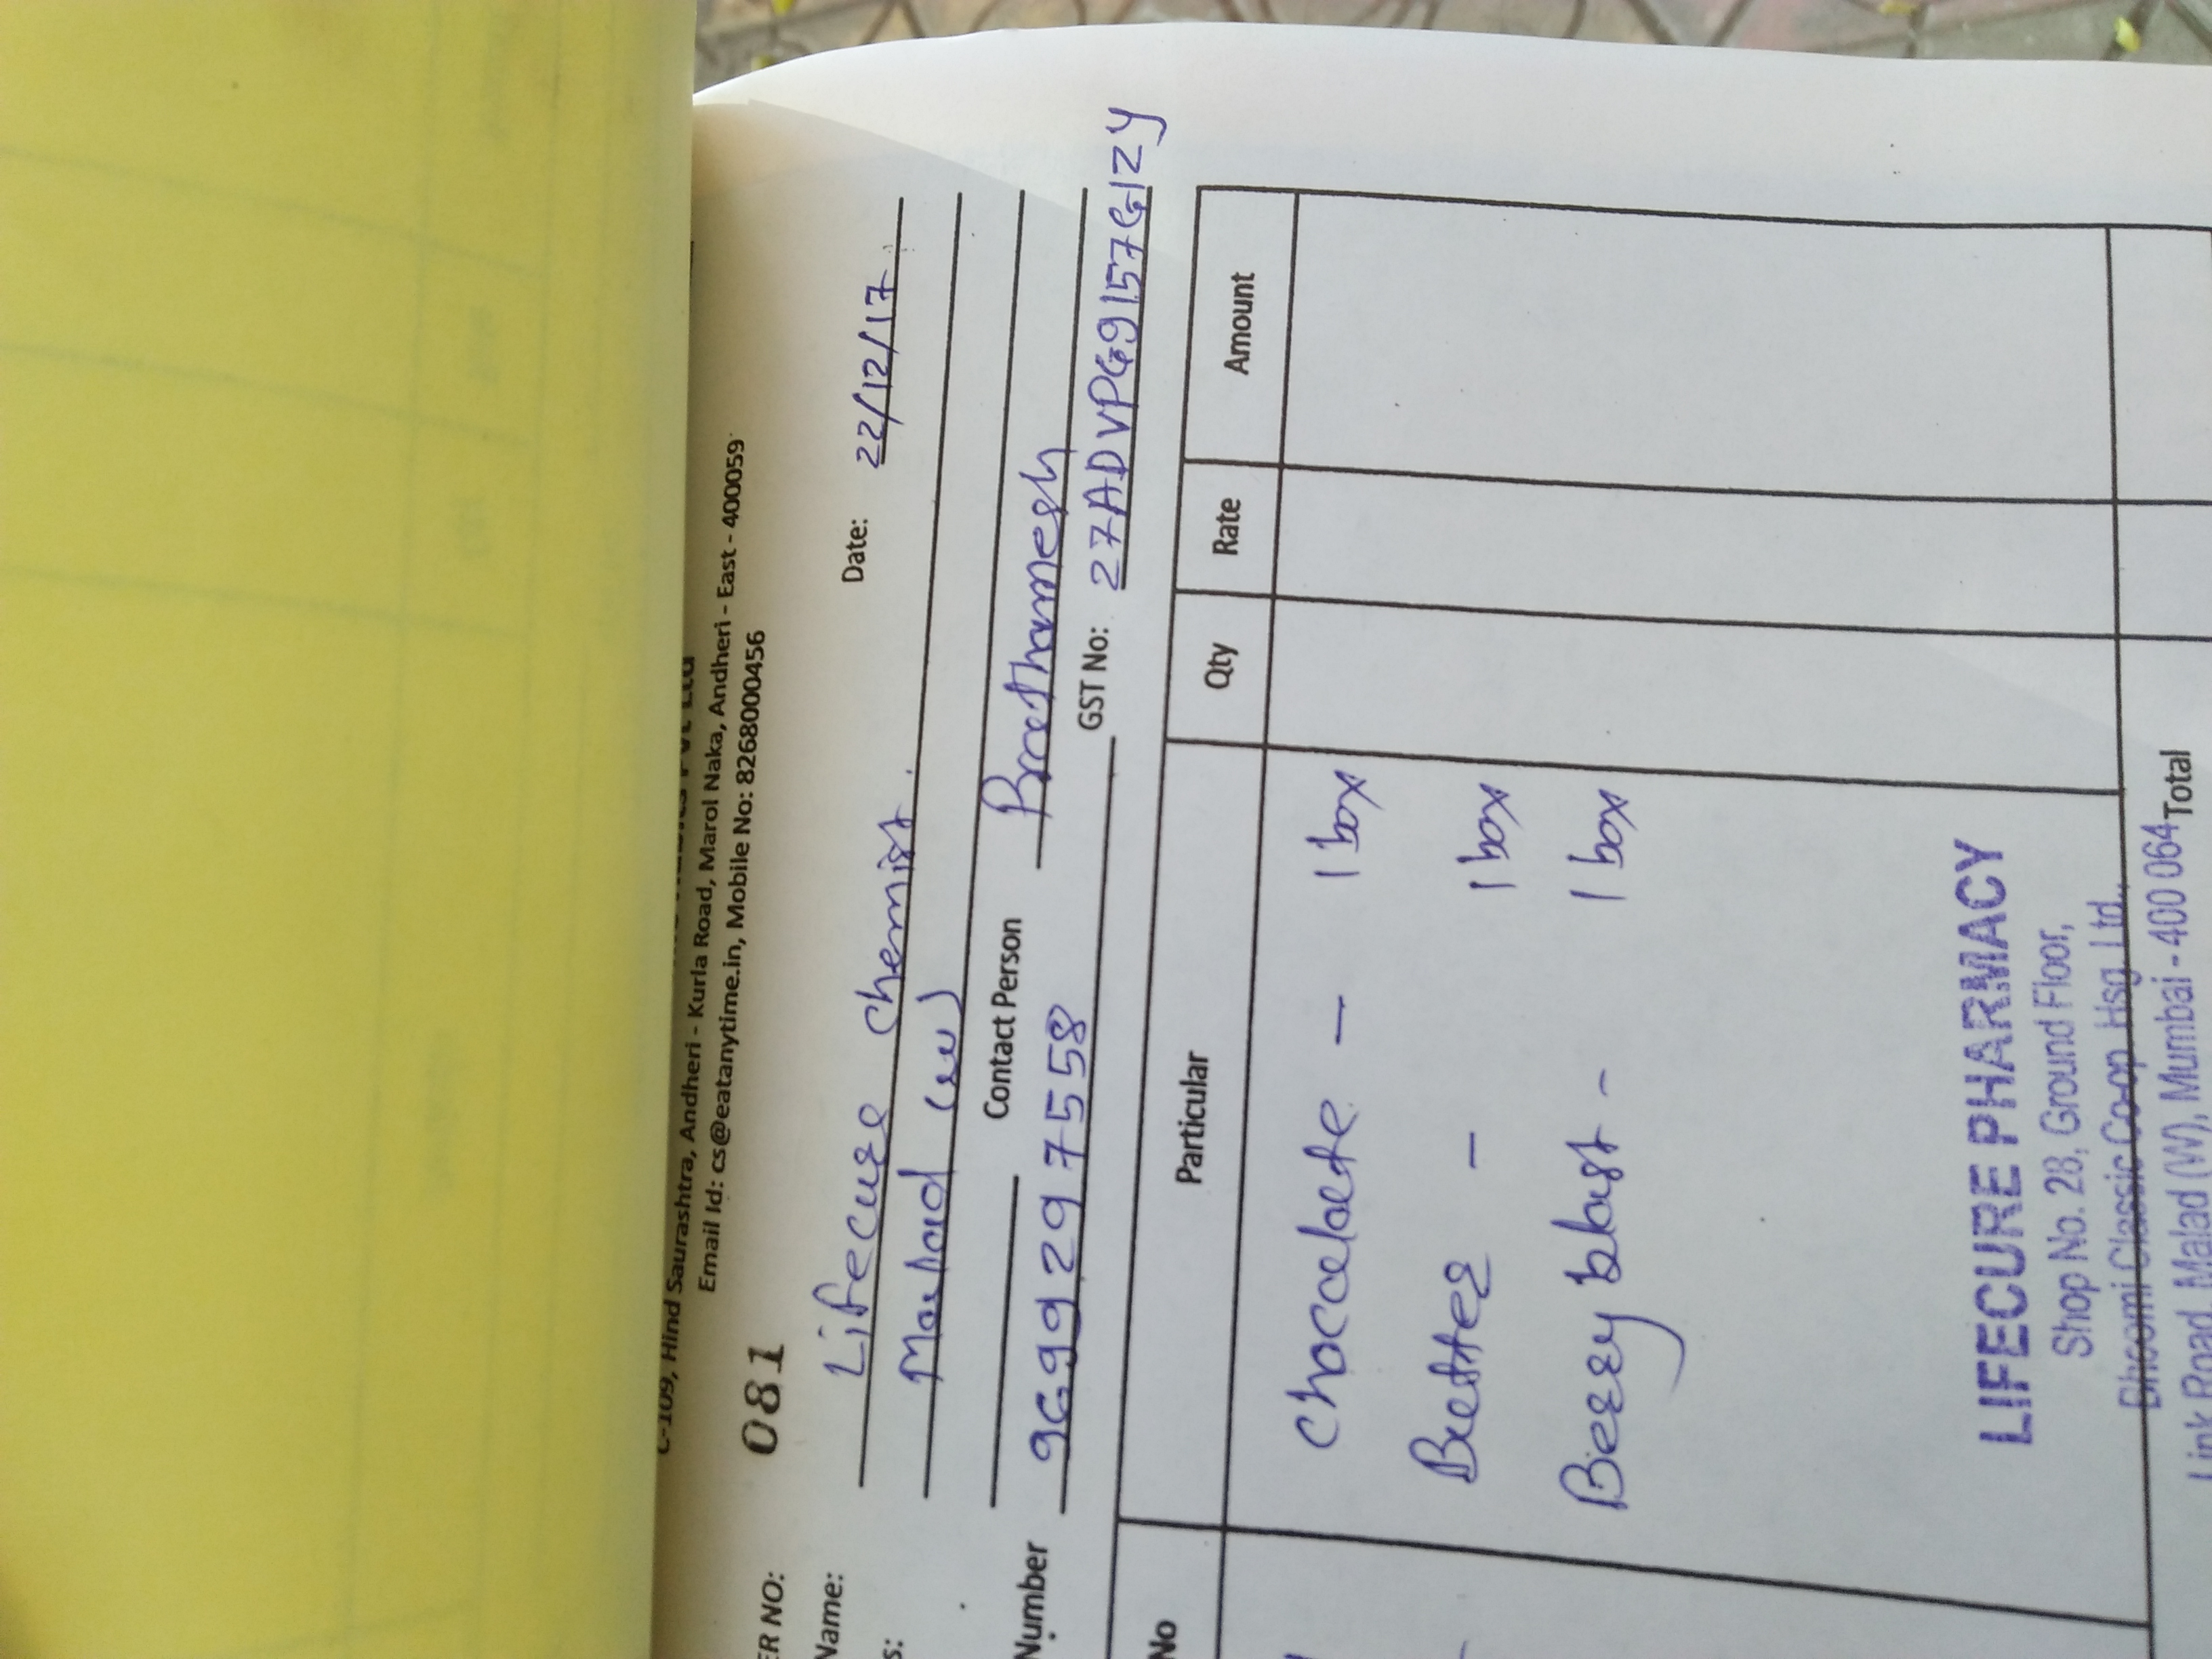 C-109, Hind Saurashtra, Andheri - Kurla Road, Marol Naka, Andheri - East - 400059
Email Id: cs@eatanytime.in, Mobile No: 8268000456
ER NO: 081
Name: Lifecure Chemist Date: 22/12/17
s: Malad (w)
Contact Person Prathamesh
Number 9699297558 GST No: 27ADVPG9157G1ZY
No Particular Qty Rate Amount
Chocolate - 1 box
Butter - 1 box
Berry blast - 1 box
LIFECURE PHARMACY
Shop No. 28, Ground Floor,
Bhoomi Classic Co-op. Hsg. Ltd.,
Link Road, Malad (W), Mumbai - 400 064
Total